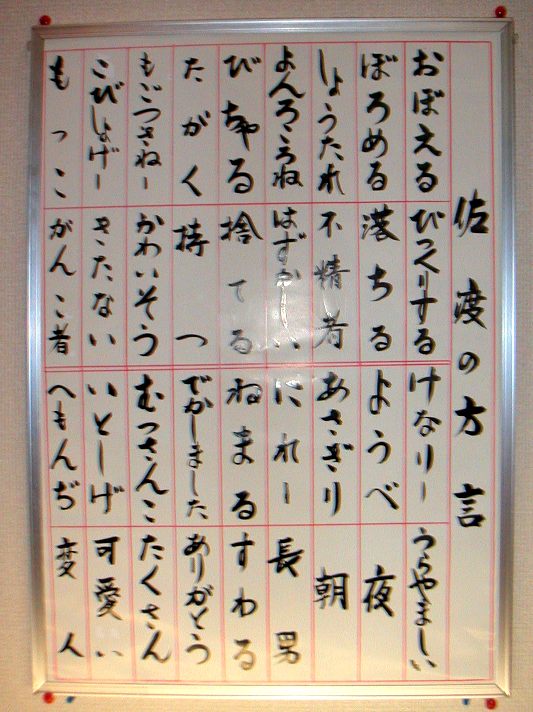 佐渡の方言
おぼえる びっくりする けなりー うらやましい
ぼろめる 落ちる ようべ 夜
しょうたれ 不精者 あさぎり 朝
よんろころね はずかしい にれー 長男
びちゃる 捨てる ねまる すわる
たがく 持つ でかしました ありがとう
もごつさねー かわいそう むっさんこ たくさん
こびしょげー きたない いとしげ 可愛い
もっこ がんこ者 へもんぢ 変人